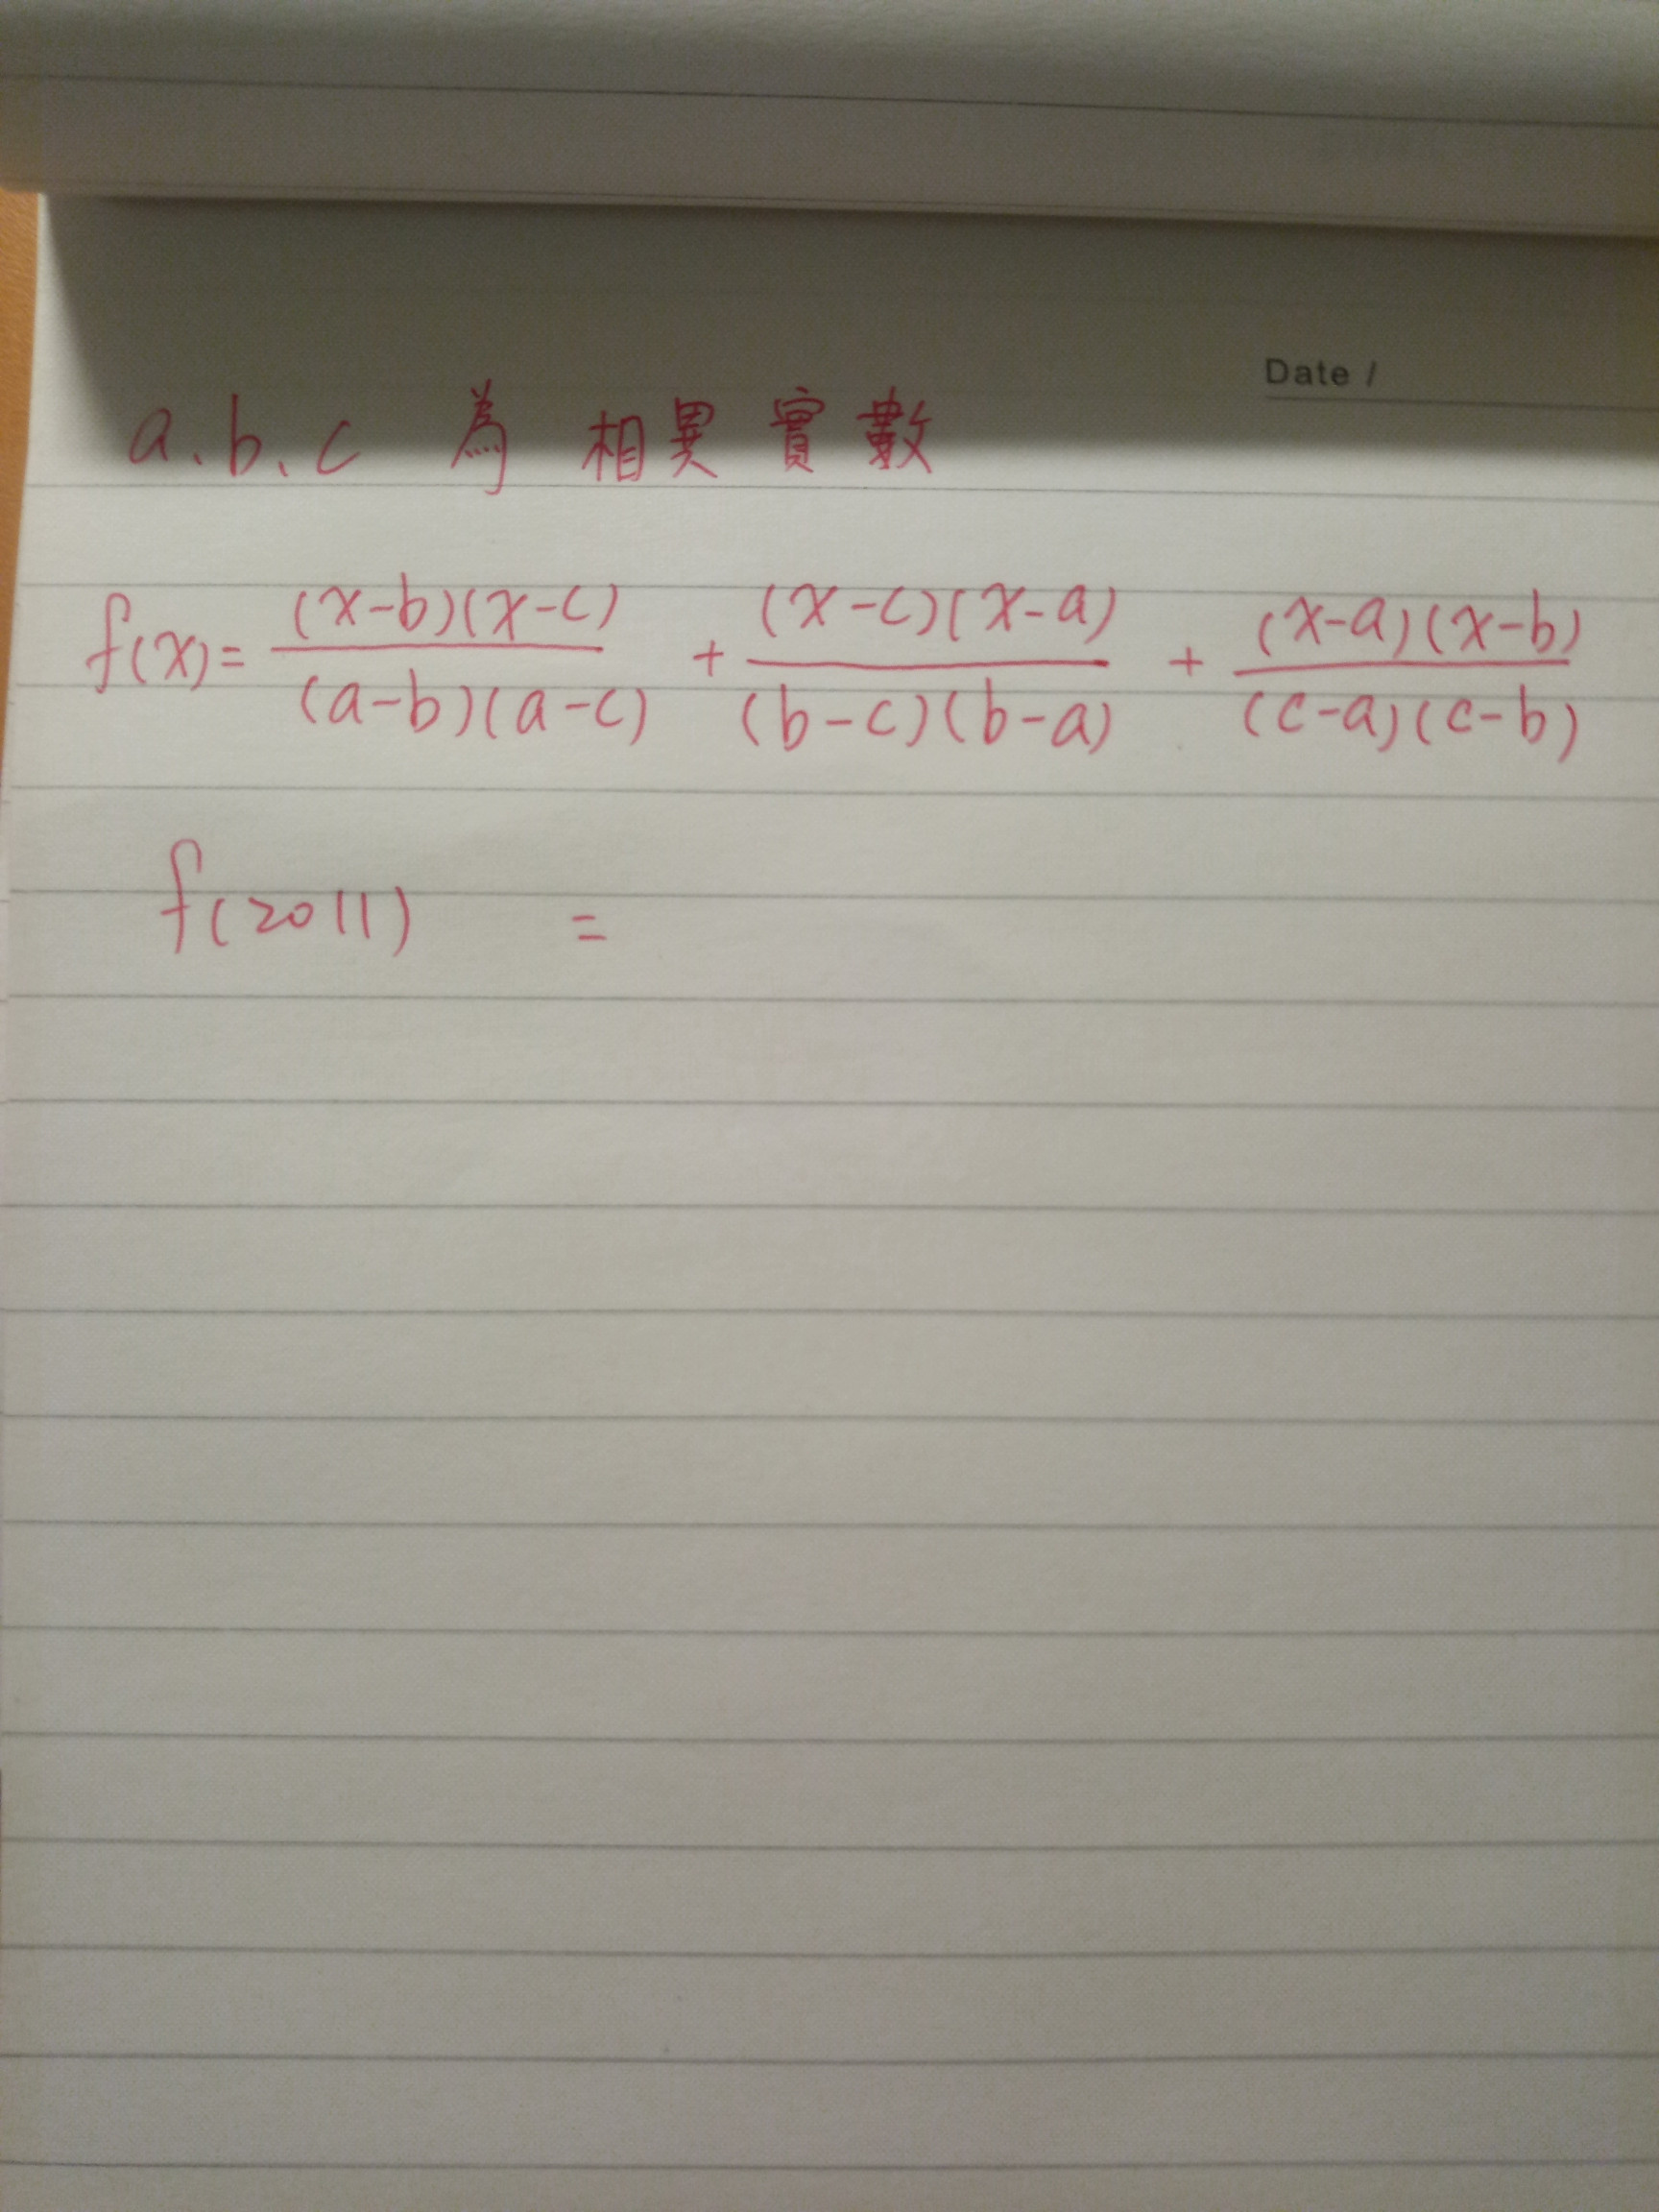 Date /
a、b、c 為 相異實數
f(x)= (x-b)(x-c) / (a-b)(a-c) + (x-c)(x-a) / (b-c)(b-a) + (x-a)(x-b) / (c-a)(c-b)
f(2011) =